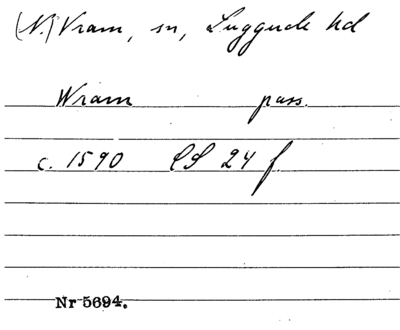 (N.) Vram, sn, Luggude hd
Wram pass.
c. 1590 CS 24 f
Nr 5694.